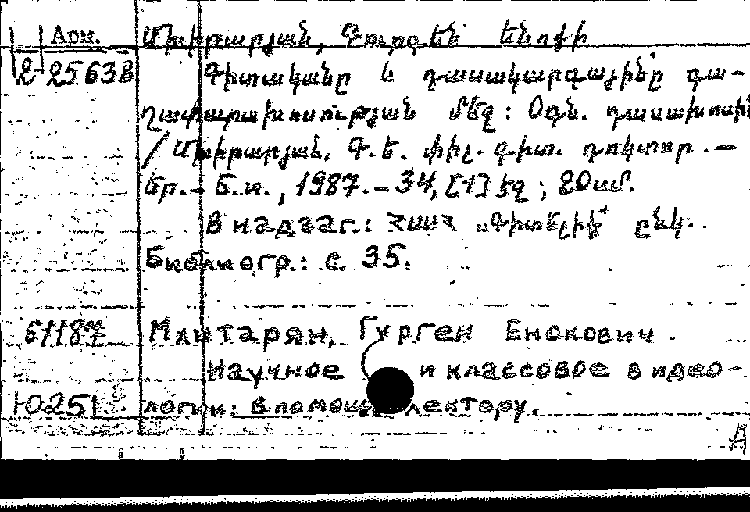 Арм. Մխիթարյան, Գուրգեն Ենոքի
2-25638 Գիտականը և դասակարգայինը գա-
ղափարախոսության մեջ: Օգն. դասախոսին
/ Մխիթարյան, Գ. Ե. փիլ. գիտ. դոկտոր. –
Եր. – Б. и., 1987. – 34, [1] էջ ; 20սմ.
В надзаг.: ՀՍՍՀ „Գիտելիք“ ընկ.
Библиогр.: с. 35.
61187 Мхитарян, Гурген Енокович.
Научное и классовое в идео-
10251 логии: В помощь лектору.
А